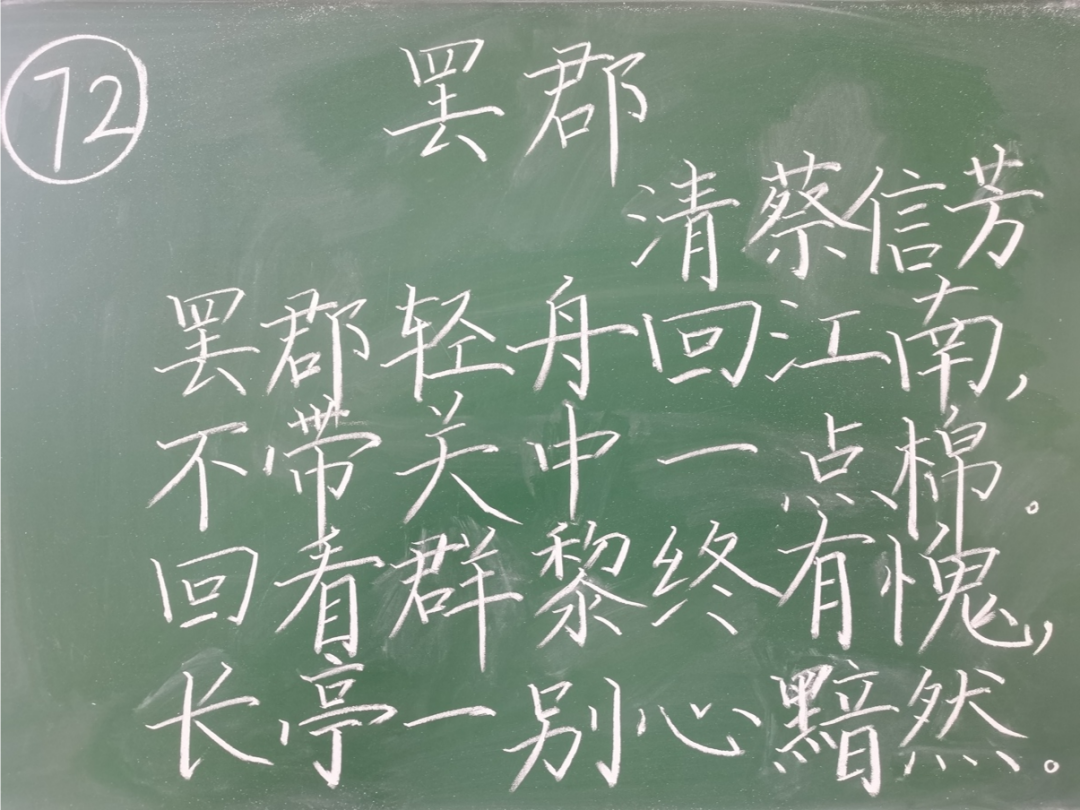 72
罢郡
清蔡信芳
罢郡轻舟回江南,
不带关中一点棉。
回看群黎终有愧,
长亭一别心黯然。